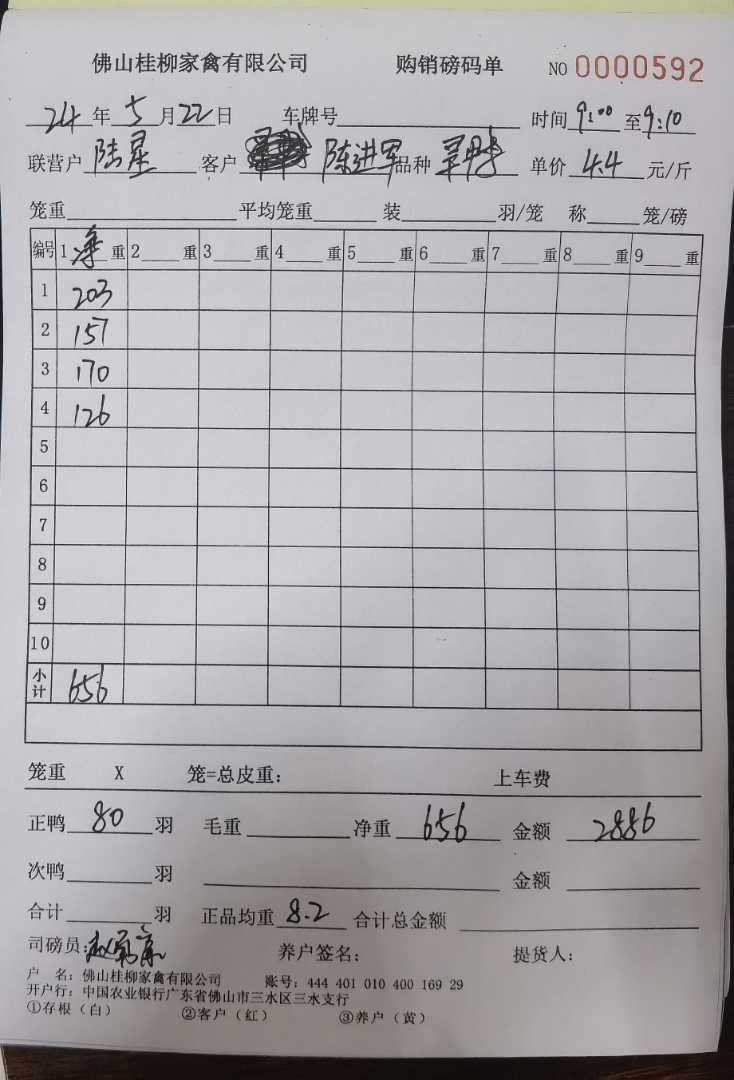 佛山桂柳家禽有限公司 购销磅码单 NO 0000592
24年5月22日 车牌号 时间9:00至9:10
联营户 陆星 客户 陈进军 品种 单价 4.4 元/斤
笼重 平均笼重 装 羽/笼 称 笼/磅
编号 1 净 重 2 重 3 重 4 重 5 重 6 重 7 重 8 重 9 重
1 203
2 157
3 170
4 126
5
6
7
8
9
10
小计 656
笼重 X 笼=总皮重: 上车费
正鸭 80 羽 毛重 净重 656 金额 2886
次鸭 羽 金额
合计 羽 正品均重 8.2 合计总金额
司磅员: 养户签名: 提货人:
户 名: 佛山桂柳家禽有限公司 账号: 444 401 010 400 169 29
开户行: 中国农业银行广东省佛山市三水区三水支行
①存根（白） ②客户（红） ③养户（黄）